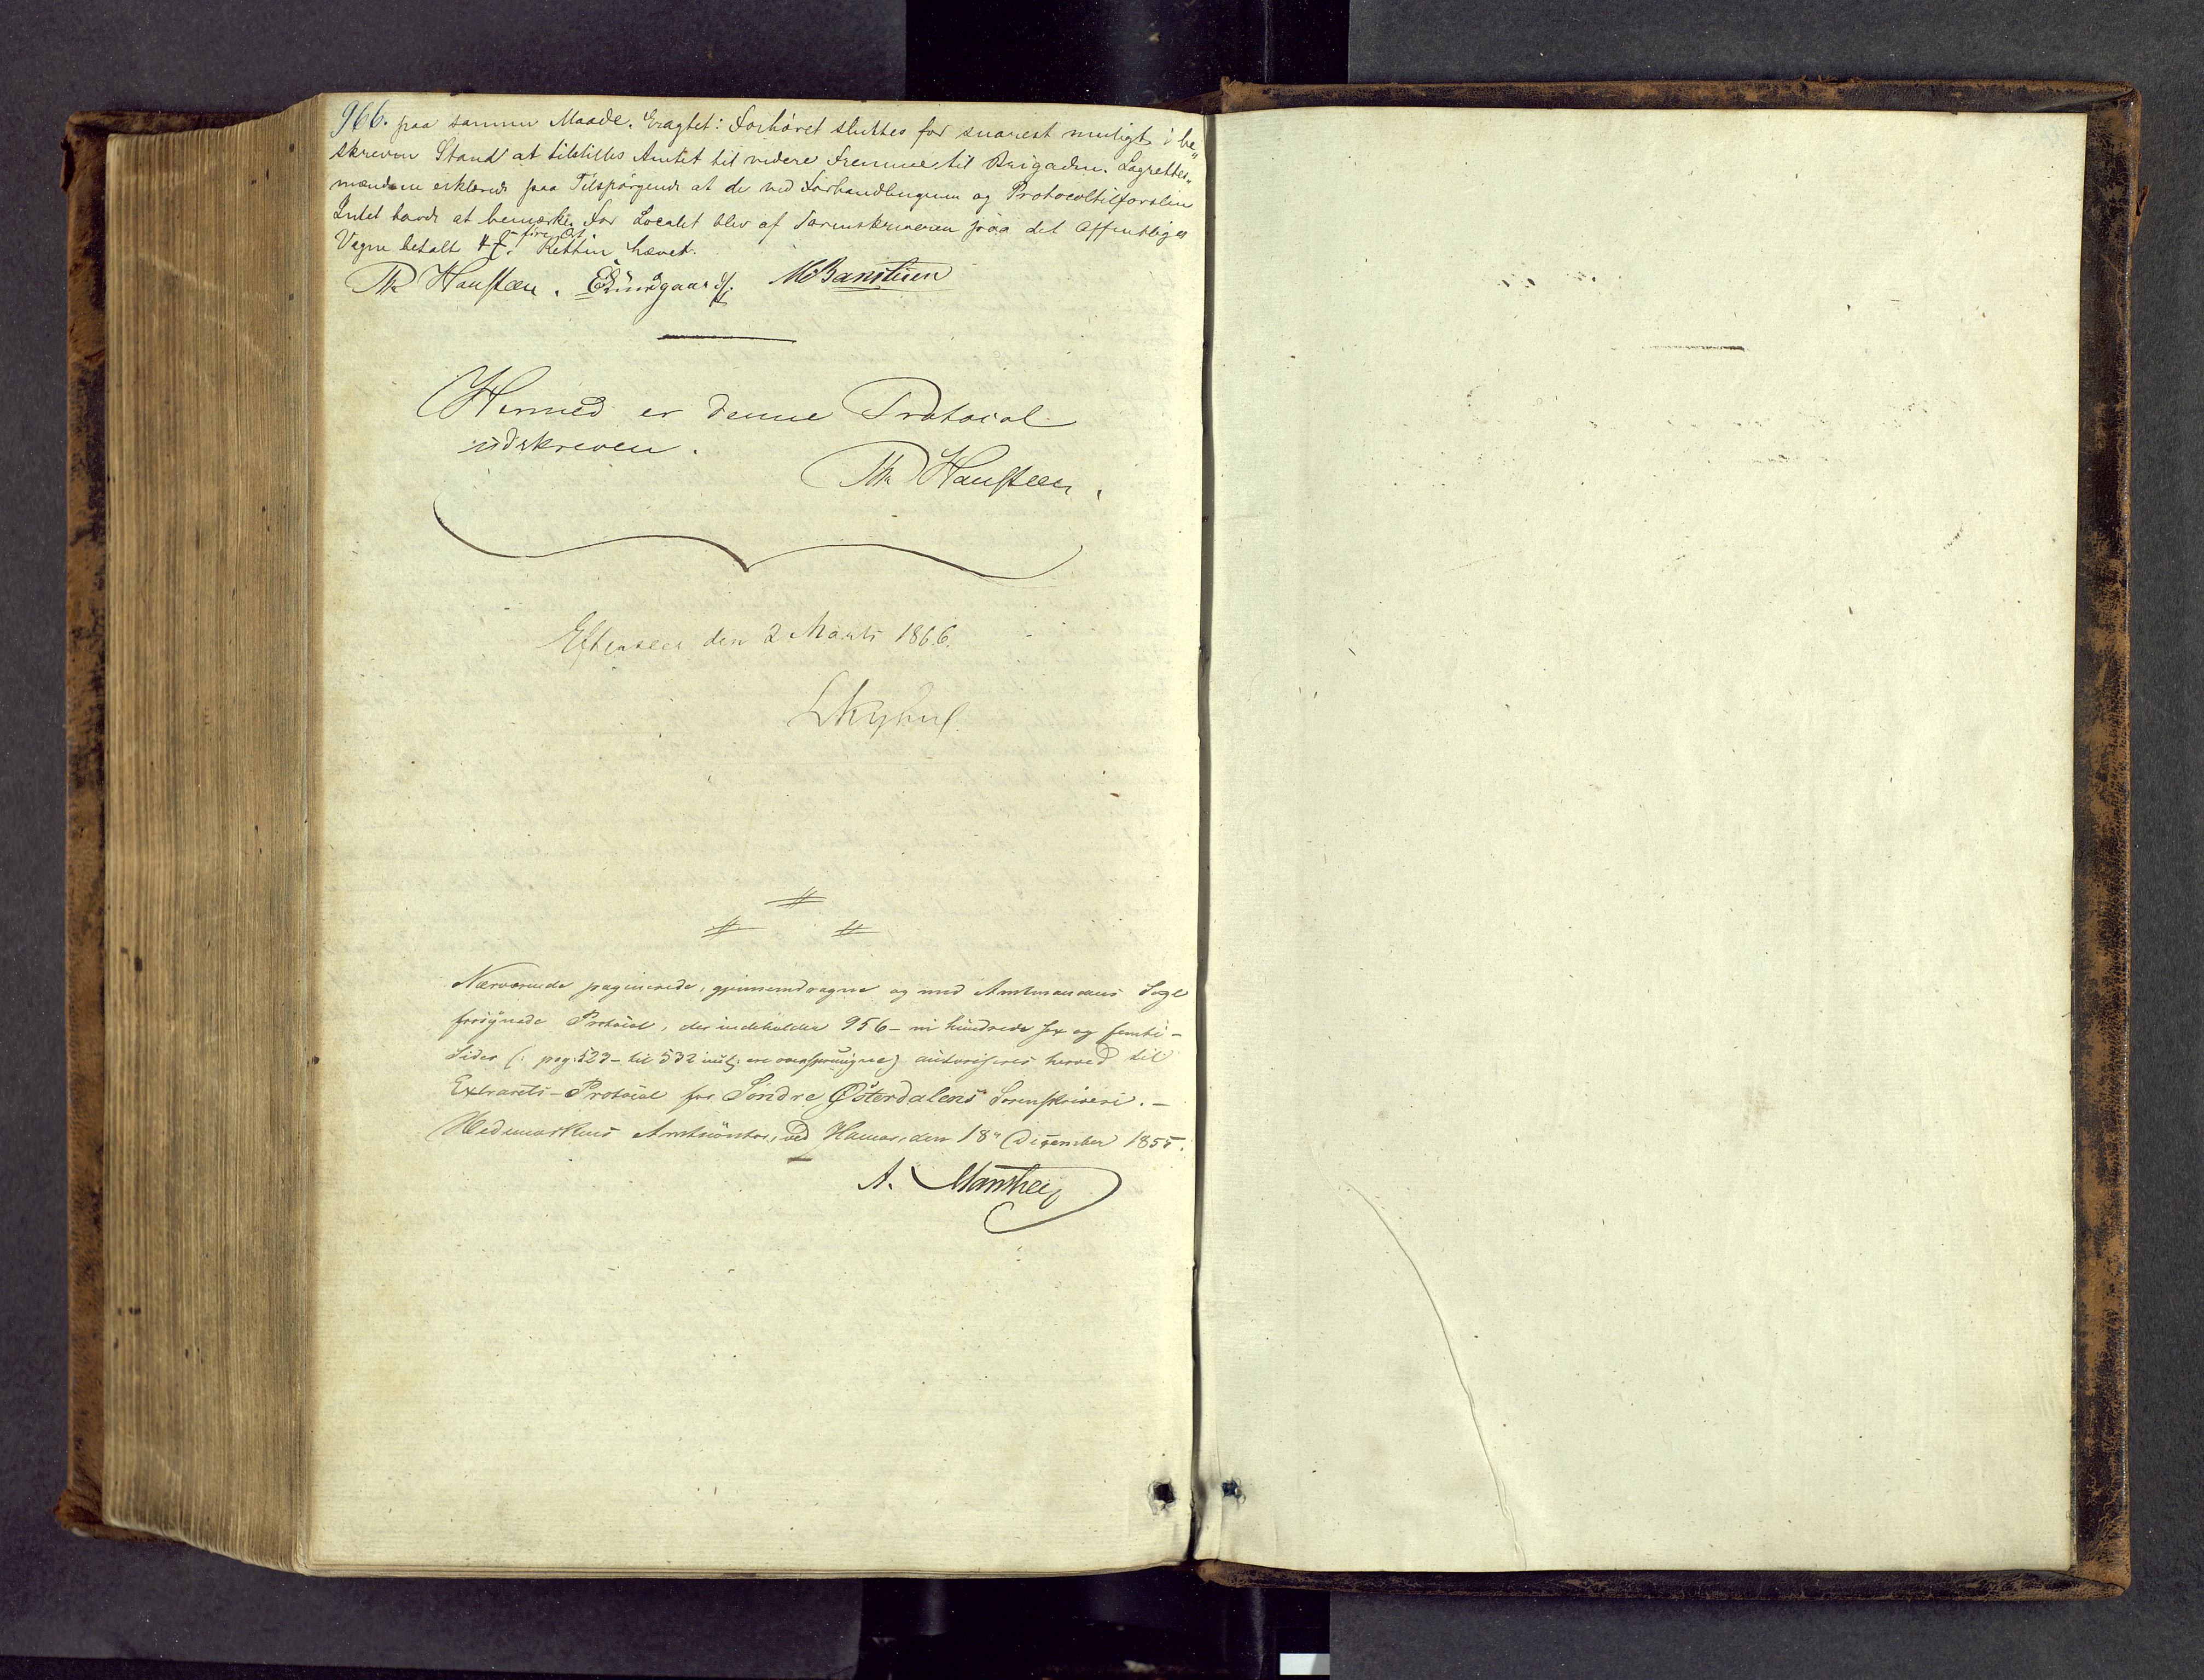 966. paa samme Maade. Eragtet: Forhøret sluttes for snarest muligt i be„
skreven Stand at tilstilles Amtet til videre Fremme til Brigaden. Lagrettes„
mændene erklærede paa Tilspørgende at de ved Forhandlingerne og Protocoltilførslen
Intet havde at bemærke. For Localet blev af Sorenskriveren paa det Offentliges
Vegne betalt 4 fire Ort. Retten hævet.
Th Hansteen. MBantsen
Hermed er denne Protocol
udskreven.
Th Hansteen.
Efterseet den 2 Marts 1866.
Nærværende paginerede, gjennemdragne og med Amtmandens Segl
forsynede Protocol, der indeholder 956 – ni hundrede sex og femti –
Sider (: pag: 523 – til 532 incl; ere oversprungne) autoriseres herved til
Extrarets-Protocol for Søndre Østerdalens Sorenskriveri. –
Hedemarkens Amtscontor, ved Hamar, den 18de December 1855.
A. Manthey